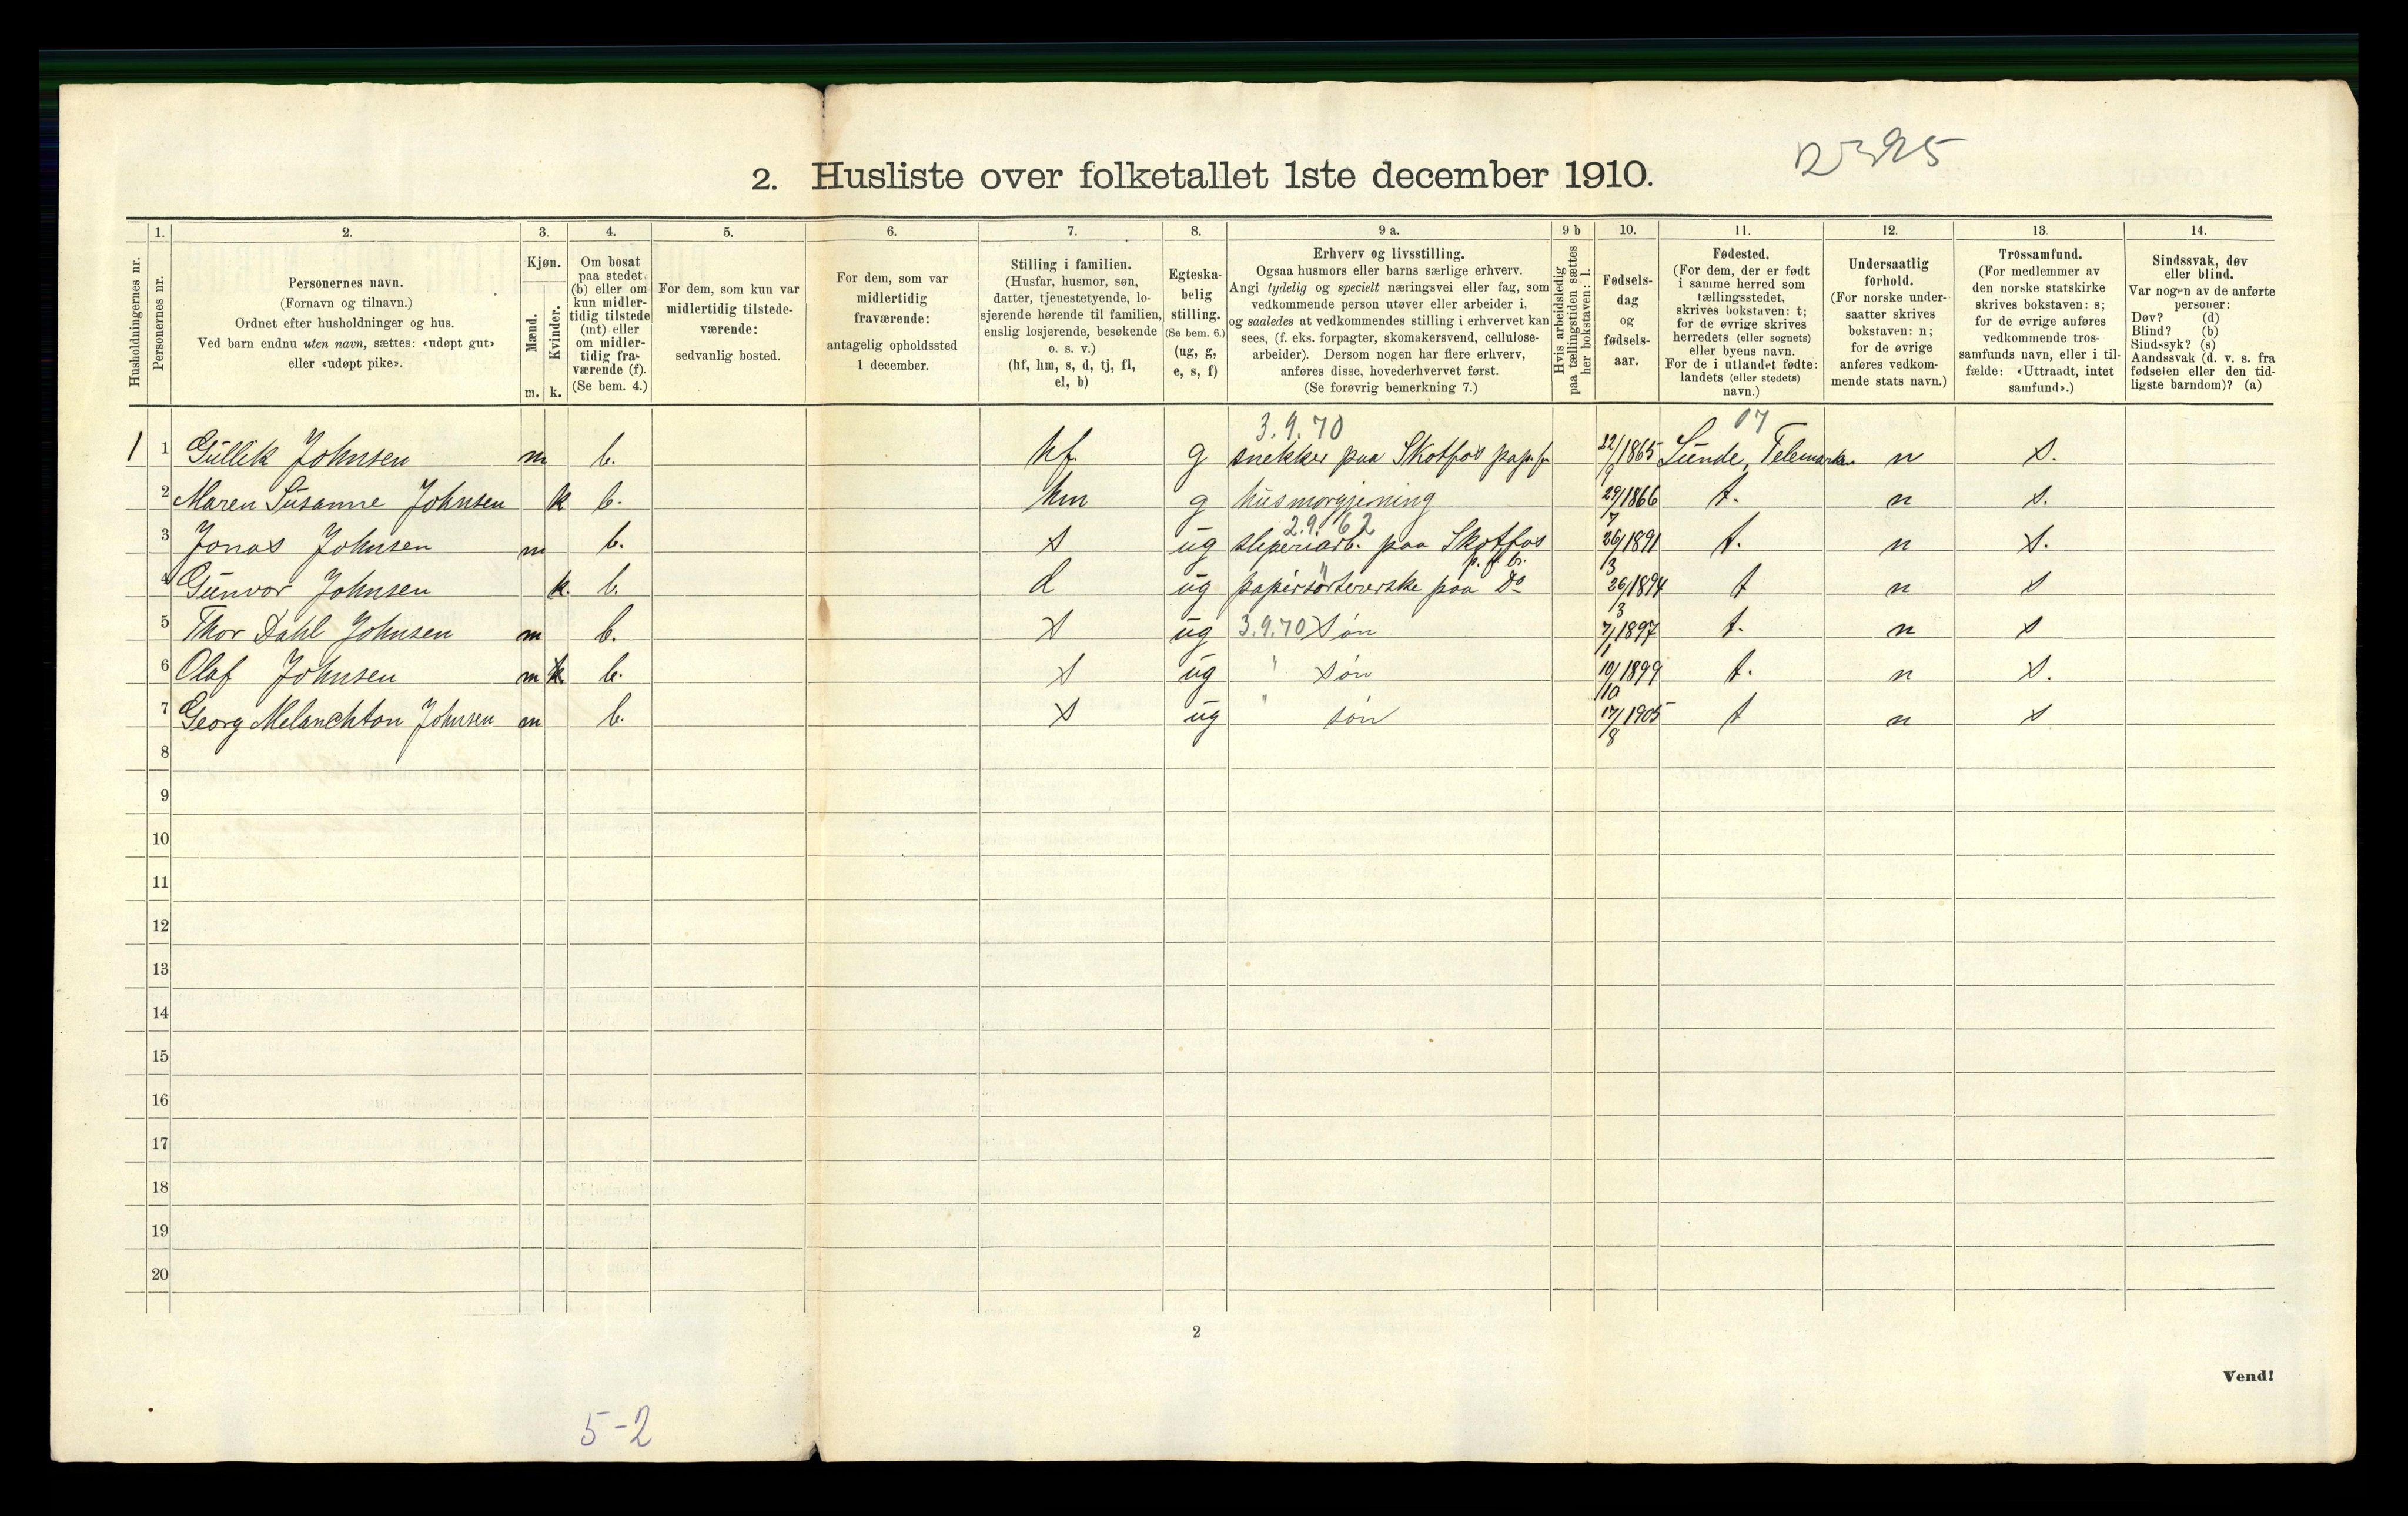 2395
2. Husliste over folketallet 1ste december 1910.
Husholdningernes nr.
1.
Personernes nr.
2.
Personernes navn.
(Fornavn og tilnavn.)
Ordnet efter husholdninger og hus.
Ved barn endnu uten navn, sættes: «udøpt gut»
eller «udøpt pike».
3.
Kjøn.
Mænd.
Kvinder.
m. k.
4.
Om bosat
paa stedet
(b) eller om
kun midler-
tidig tilstede
(mt) eller
om midler-
tidig fra-
værende (f).
(Se bem. 4.)
5.
For dem, som kun var
midlertidig tilstede-
værende:
sedvanlig bosted.
6.
For dem, som var
midlertidig
fraværende:
antagelig opholdssted
1 december.
7.
Stilling i familien.
(Husfar, husmor, søn,
datter, tjenestetyende, lo-
sjerende hørende til familien,
enslig losjerende, besøkende
o. s. v.)
(hf, hm, s, d, tj, fl,
el, b)
8.
Egteska-
belig
stilling.
(Se bem. 6.)
(ug, g,
e, s, f)
9 a.
Erhverv og livsstilling.
Ogsaa husmors eller barns særlige erhverv.
Angi tydelig og specielt næringsvei eller fag, som
vedkommende person utøver eller arbeider i,
og saaledes at vedkommendes stilling i erhvervet kan
sees, (f. eks. forpagter, skomakersvend, cellulose-
arbeider). Dersom nogen har flere erhverv,
anføres disse, hovederhvervet først.
(Se forøvrig bemerkning 7.)
9 b
Hvis arbeidsledig
paa tællingstiden sættes
her bokstaven: l.
10.
Fødsels-
dag
og
fødsels-
aar.
11.
Fødested.
(For dem, der er født
i samme herred som
tællingsstedet,
skrives bokstaven: t;
for de øvrige skrives
herredets (eller sognets)
eller byens navn.
For de i utlandet fødte:
landets (eller stedets)
navn.)
12.
Undersaatlig
forhold.
(For norske under-
saatter skrives
bokstaven: n;
for de øvrige
anføres vedkom-
mende stats navn.)
13.
Trossamfund.
(For medlemmer av
den norske statskirke
skrives bokstaven: s;
for de øvrige anføres
vedkommende tros-
samfunds navn, eller i til-
fælde: «Uttraadt, intet
samfund».)
14.
Sindssvak, døv
eller blind.
Var nogen av de anførte
personer:
Døv? (d)
Blind? (b)
Sindssyk? (s)
Aandssvak (d. v. s. fra
fødselen eller den tid-
ligste barndom)? (a)
3.9.70 07
1 1 Gullik Johnsen m b. hf g snekker paa Skotfos pap.fr 22/9 1865 Lunde, Telemarken n s.
2 Maren Susanne Johnsen k b. hm g husmorgjerning 29/7 1866 t. n s.
2.9.62
3 Jonas Johnsen m b. s ug sliperiarb. paa Skotfos p. f. br. 26/3 1891 t. n s.
4 Gunvor Johnsen k. b. d ug papirsortererske paa Do " 26/3 1894 t n s
5 Thor Dahl Johnsen m b. s ug 3.9.70 Søn 7/1 1897 t. n s
6 Olaf Johnsen m k b. s ug " Søn 10/10 1899 t. n s.
7 Georg Melanchton Johnsen m b. s ug " søn 17/8 1905 t n s
8
9
10
11
12
13
14
15
16
17
18
19
20
2
Vend!
5-2